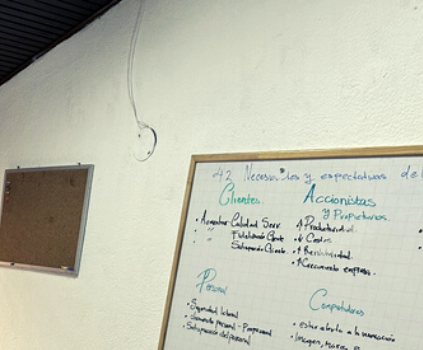 4.2 Necesidades y expectativas de
Clientes.
• Aumentar Calidad Serv.
• " Fidelización Cliente
" Satisfacción Cliente.
Accionistas
y Propietarios.
• ↑ Productividad.
• ↓ Costos.
• ↑ Rentabilidad.
• ↑ Crecimiento empresa.
Personal
• Seguridad laboral
personal - Proposional
• Satisfacción del personal
Competidores
• estar abierto a la innovación
• Imagen, marca